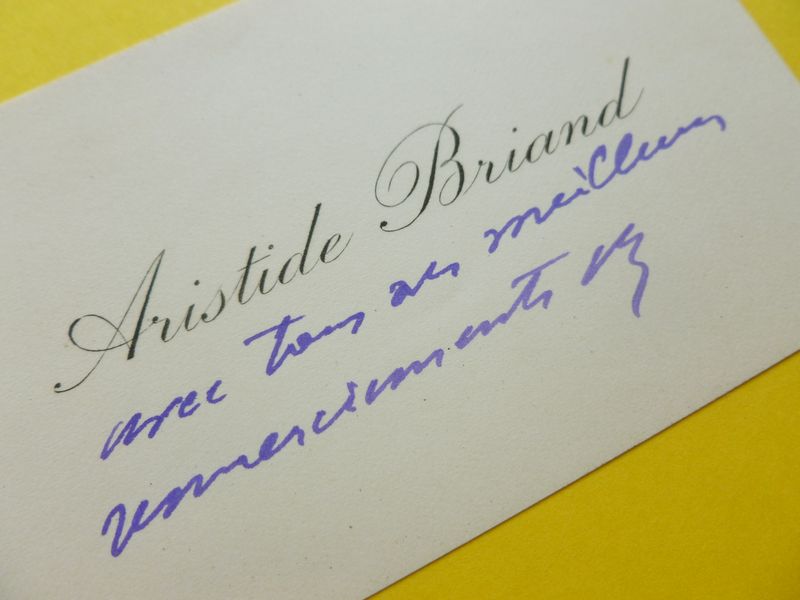 Aristide Briand
avec tous ses meilleurs
remerciements